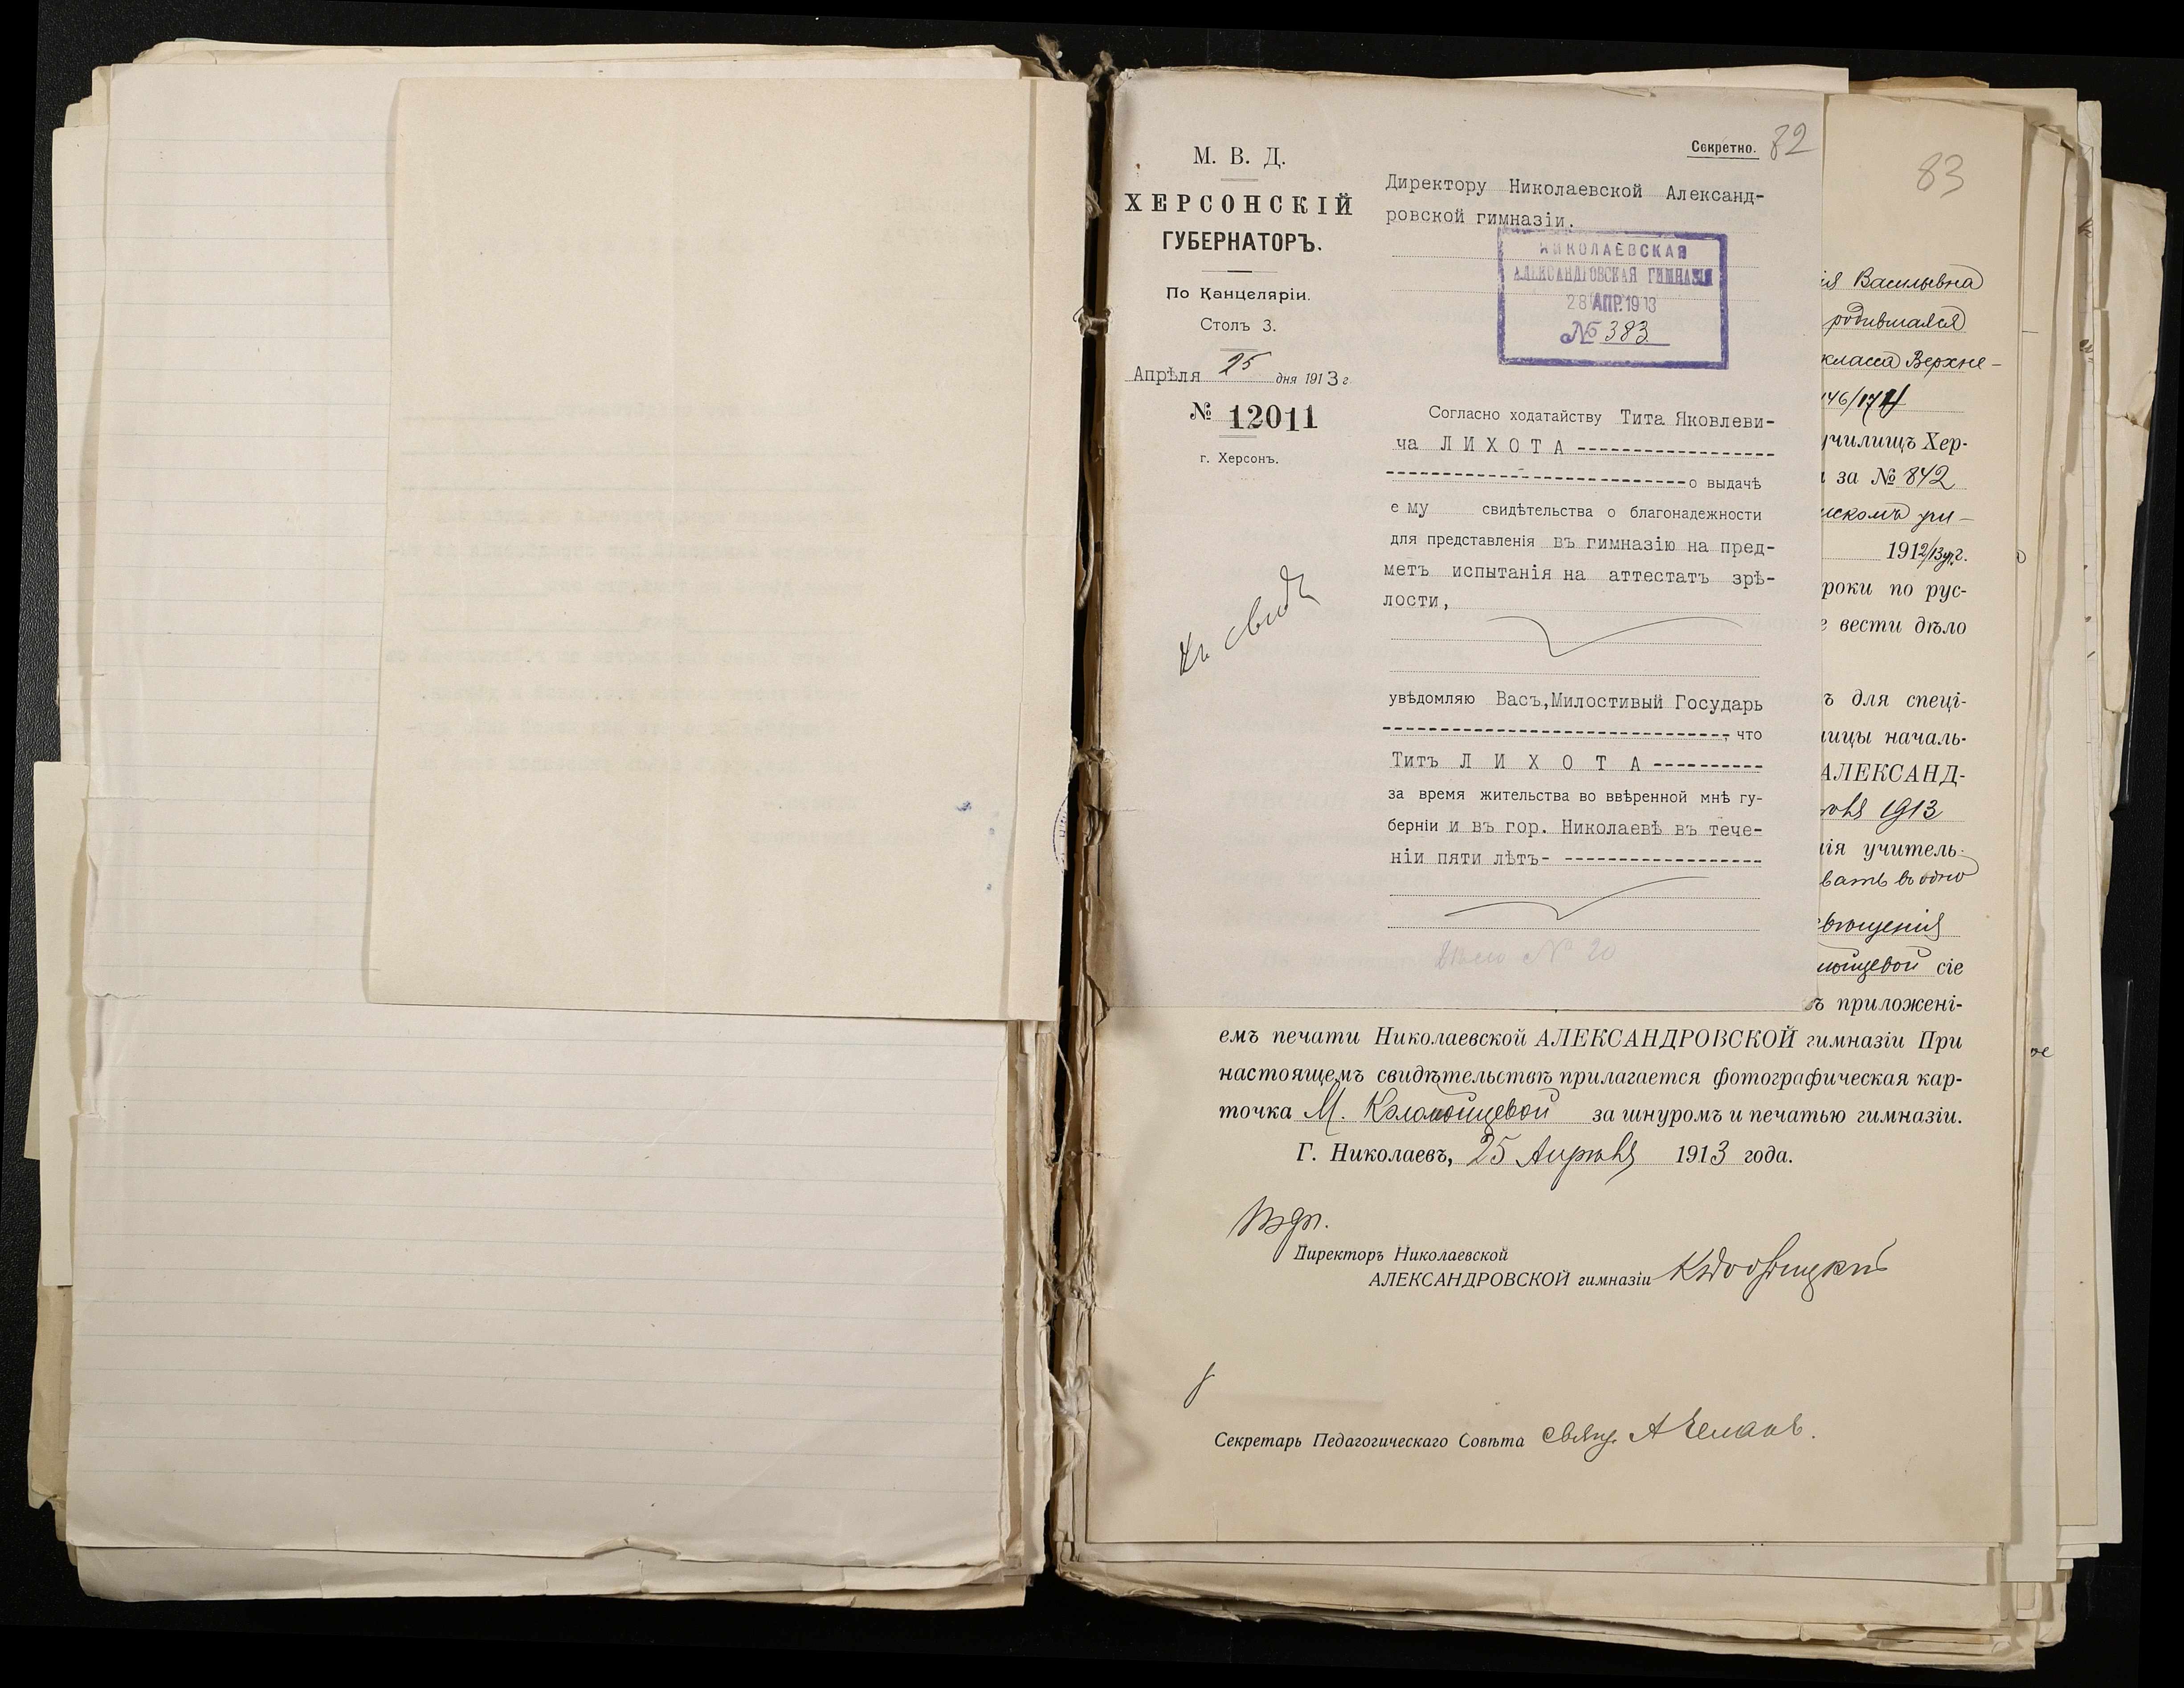 М. В. Д.
ХЕРСОНСКІЙ
ГУБЕРНАТОРЪ.
По Канцеляріи.
Столъ 3.
Апрѣля 25 дня 1913 г.
№ 12011
г. Херсонъ.
Секретно.
82
Директору Николаевской Александ-
ровской гимназіи.
НИКОЛАЕВСКАЯ
АЛЕКСАНДРОВСКАЯ ГИМНАЗІЯ
28 АПР. 1913
№ 383
Согласно ходатайству Тита Яковлеви-
ча ЛИХОТА
о выдачѣ
ему свидѣтельства о благонадежности
для представленія въ гимназію на пред-
метъ испытанія на аттестатъ зрѣ-
лости,
увѣдомляю Васъ, Милостивый Государь
, что
Титъ ЛИХОТА
за время жительства во ввѣренной мнѣ гу-
берніи и въ гор. Николаевѣ въ тече-
ніи пяти лѣтъ-
№ 20
83
ія Васильевна
родившаяся
класса Верхне-
146/171
училищъ Хер-
за № 842
1912/13 уч. г.
роки по рус-
е вести дѣло
ъ для спеці-
ницы началь-
АЛЕКСАНД-
1913
нія учитель-
вать въ одно
свѣщенія
сіе
ъ приложені-
емъ печати Николаевской АЛЕКСАНДРОВСКОЙ гимназіи При
настоящемъ свидѣтельствѣ прилагается фотографическая кар-
точка М. Коломойцевой за шнуромъ и печатью гимназіи.
Г. Николаевъ, 25 Апрѣля 1913 года.
Директоръ Николаевской
АЛЕКСАНДРОВСКОЙ гимназіи
Секретарь Педагогическаго Совѣта свящ. А.